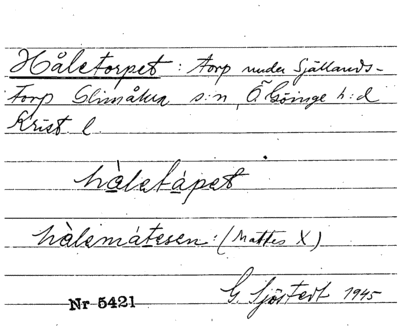 Håletorpet : torp under Sjællands-
torp Glimåkra s:n, Ö Göinge h:d
Krist l.
hàletápet
hàlemátesen : (Mattes X)
Nr 5421 G. Sjöstedt 1945